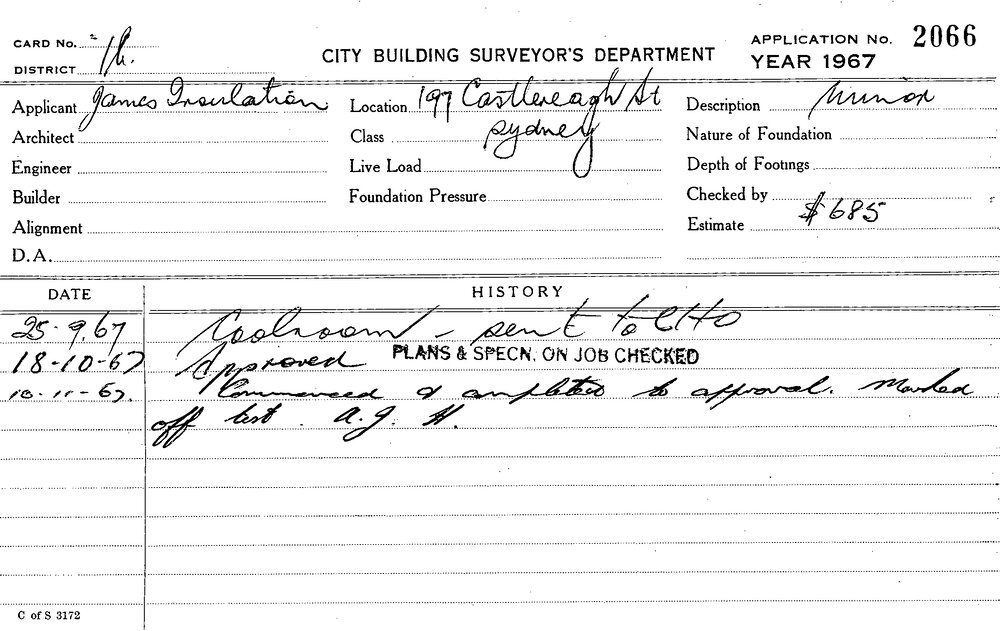 CARD No. 1h.
DISTRICT
CITY BUILDING SURVEYOR'S DEPARTMENT
APPLICATION No. 2066
YEAR 1967
Applicant James Insulation
Location 197 Castlereagh St
Sydney
Description Minor
Architect
Class
Nature of Foundation
Engineer
Live Load
Depth of Footings
Builder
Foundation Pressure
Checked by
Alignment
Estimate $685
D.A.
DATE
HISTORY
25-9.67 Coolroom - sent to CHO
18-10-67 Approved PLANS & SPECN. ON JOB CHECKED
10-11-67. Commenced & completed to approval. Marked
off list. A.J. H.
C of S 3172